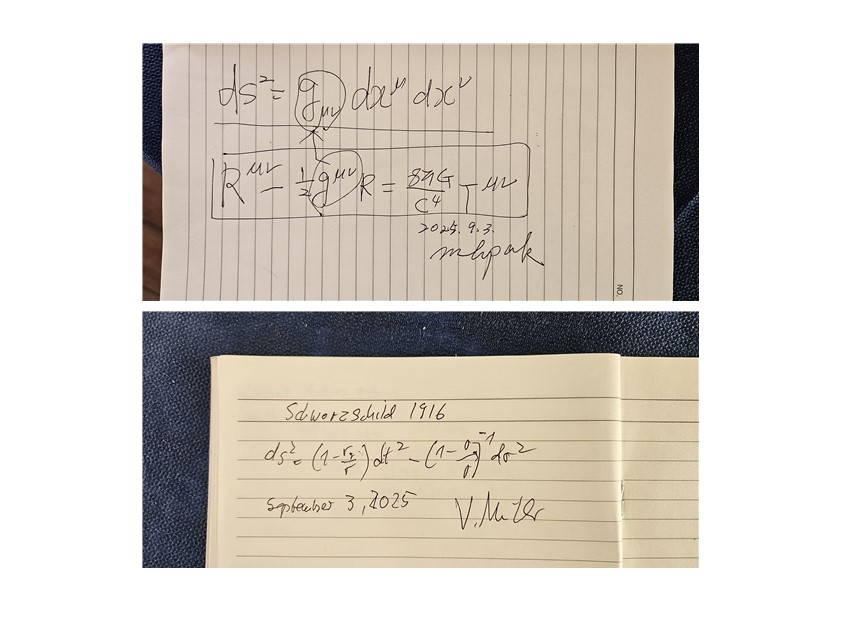 ds² = g_μν dx^μ dx^ν
R^μν − 1/2 g^μν R = 8πG/c⁴ T^μν
2025. 9. 3.
mhpark
NO.
Schwarzschild 1916
ds² = (1 - r_s/r) dt² - (1 - )⁻¹ dr²
September 3, 2025